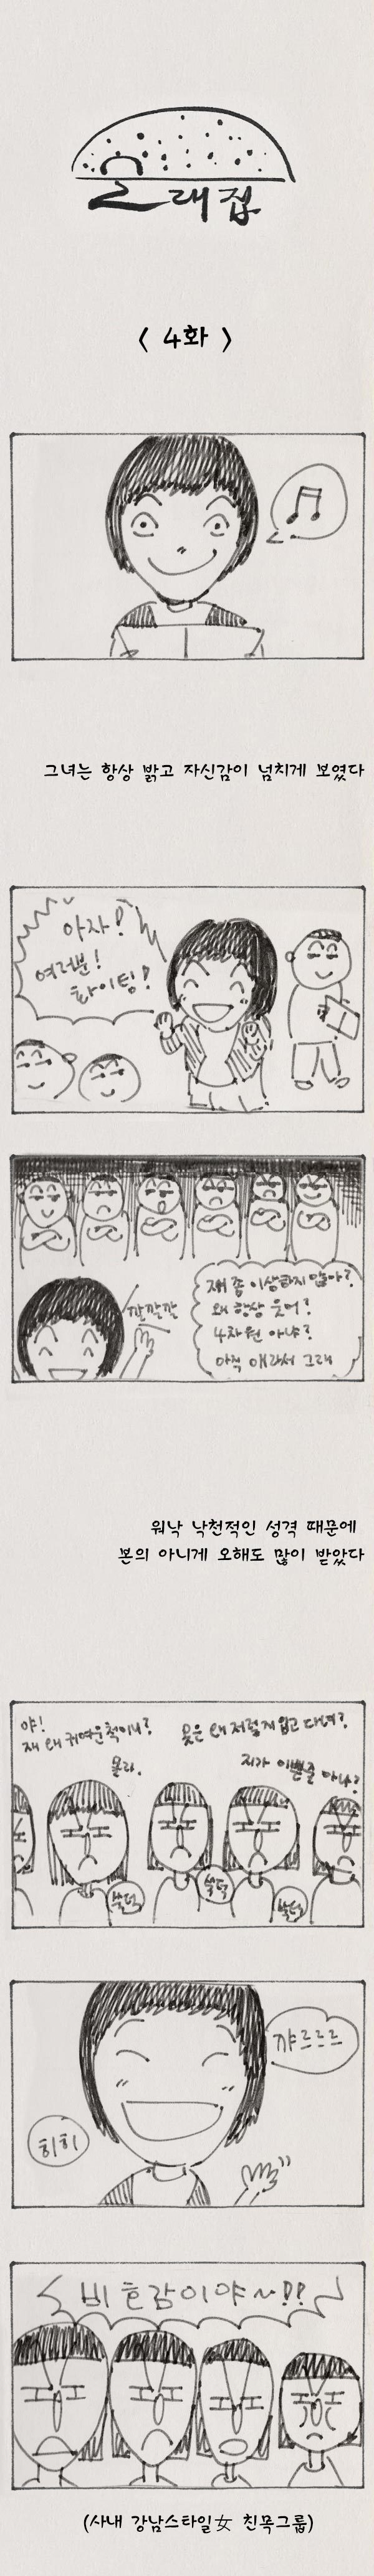 래집
< 4화 >
그녀는 항상 밝고 자신감이 넘치게 보였다
아자!
여러분!
화이팅!
깔깔깔
쟤 좀 이상하지 않아?
왜 항상 웃어?
4차원 아냐?
아직 애라서 그래
워낙 낙천적인 성격 때문에
본의 아니게 오해도 많이 받았다
야!
쟤 왜 귀여운척이니?
몰라.
옷은 왜 저렇게 입고 다녀?
지가 이쁜줄 아나?
쑥덕
쑥덕
쑥덕
꺄르르르
히히
비호감이야~!!
(사내 강남스타일女 친목그룹)